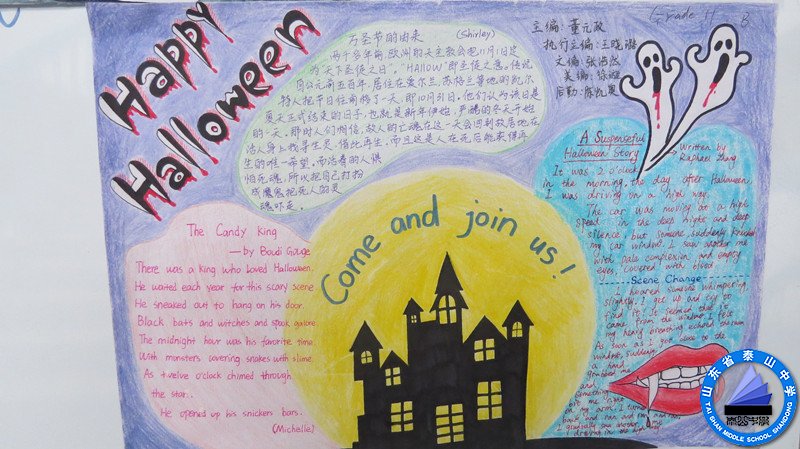 Happy
Halloween
万圣节的由来 (Shirley)
两千多年前,欧洲的天主教会把11月1日定
为"天下圣徒之日"。"HALLOW"即圣徒之意。传说
自公元前五百年,居住在爱尔兰、苏格兰等地的凯尔
特人把节日往前移了一天,即10月31日。他们认为该日是
夏天正式结束的日子,也就是新年伊始,严酷的冬天开始
的一天。那时人们相信,故人的亡魂在这一天会回到故居地在
活人身上找寻生灵,借此再生,而且这是人在死后能获得再
生的唯一希望。而活着的人惧
怕死魂,所以把自己打扮
成魔鬼把死人的灵
魂吓走。
主编:董元政
执行主编:王晓
文编:张浩然
美编:徐
后勤:
Grade 11 B
A Suspenseful
Halloween Story
Written by
Raphael Zhang
It was 2 o'clock
in the morning, the day after Halloween.
I was driving on a high way.
The car was moving at a high
speed in the deep night and deep
silence, but someone suddenly knocked
my car window. I saw another me
with pale complexion and empty
eyes, covered with blood.
Scene Change
I heared someone whimpering
slightly. I got up and try to
find it. It seemed that it
came from the window. I felt
my heavy breathing echoed the room
As soon as I got close to the
window, suddenly
a hand
grabbed me
and
something
bit me
on my arm. I turned
back and ran and ran and ran
The Candy King
—by Boudi Gouge
There was a king who loved Halloween.
He waited each year for this scary scene
He sneaked out to hang on his door
Black bats and witches and spook galore
The midnight hour was his favorite time
With monsters covering snakes with slime
As twelve o'clock chimed through
the star..
He opened up his snickers bars.
(Michelle)
Come and join us!
山东省泰山中学
TAI SHAN MIDDLE SCHOOL SHANDONG